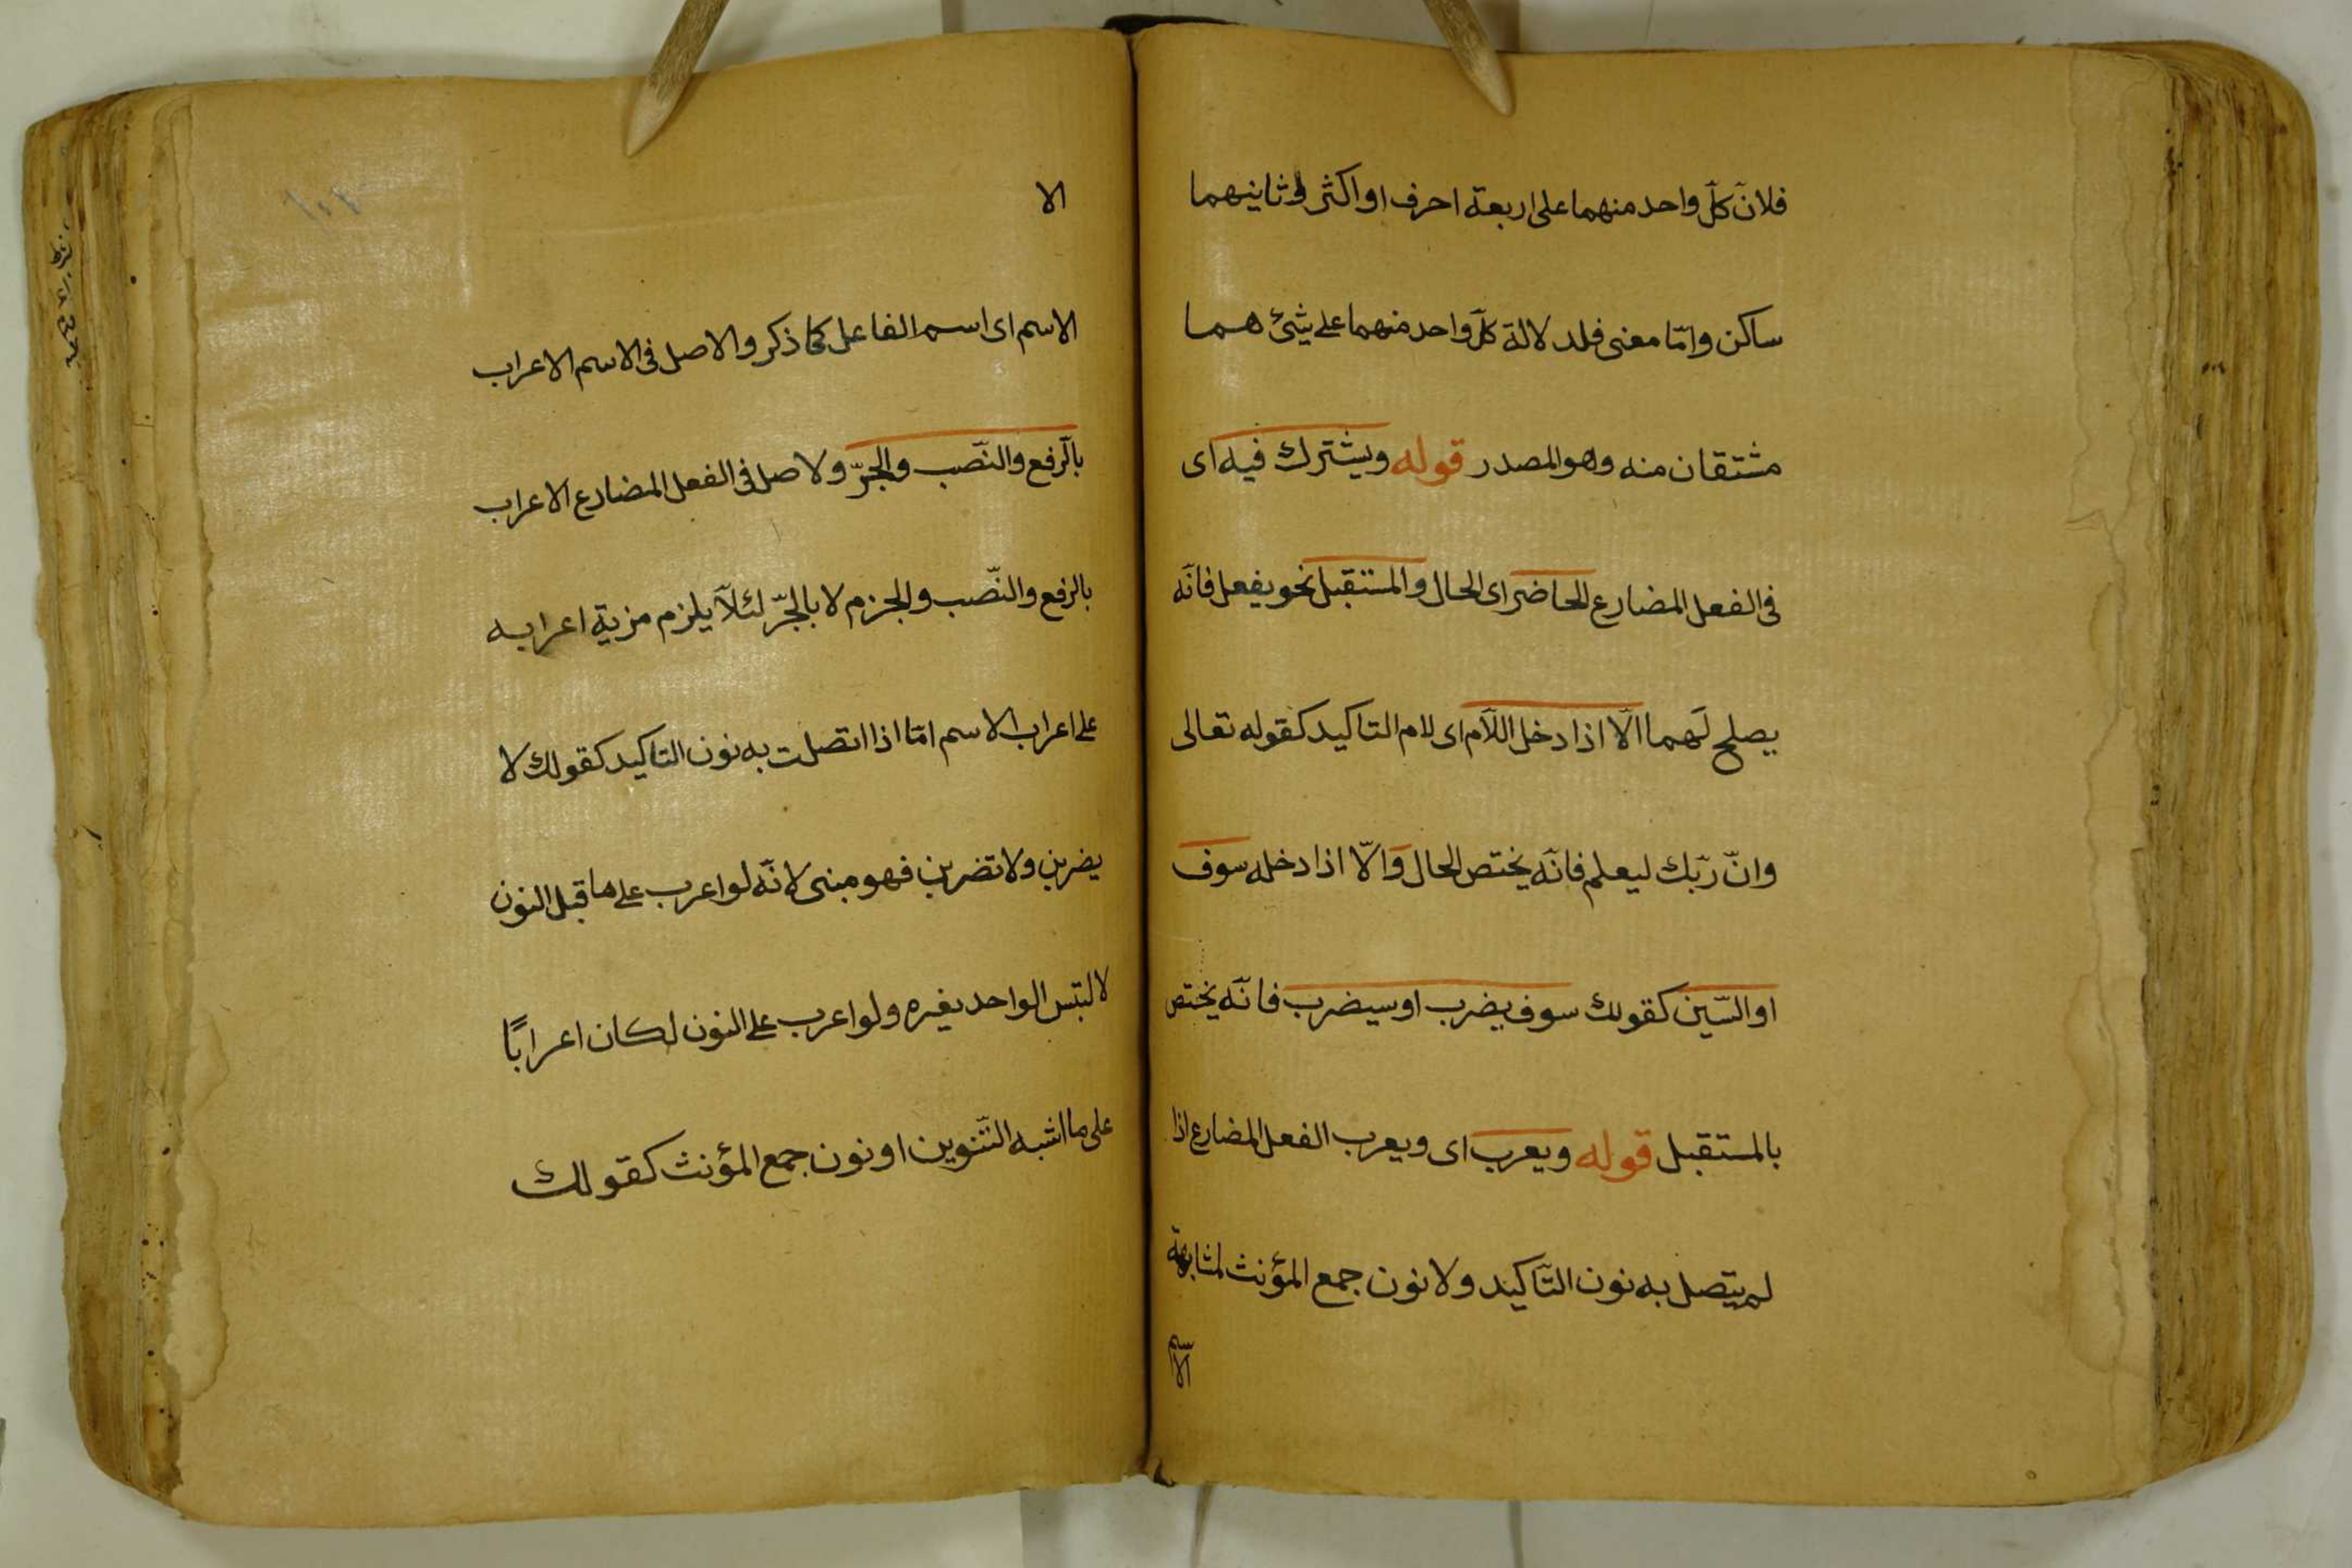 فلانّ كلّ واحد منهما على اربعة احرف او اكثر وثانيهما
ساكن وامّا معنى فلدلالة كلّ واحد منهما على شئ هما
مشتقان منه وهو المصدر قوله ويشترك فيه اى
فى الفعل المضارع الحاضر اى الحال والمستقبل نحو يفعل فانّه
يصلح لهما الّا اذا دخل اللّام اى لام التاكيد كقوله تعالى
وانّ ربّك ليعلم فانّه يختص الحال وَالّا اذا دخله سوف
او السّين كقولك سوف يضرب او سيضرب فانّه يختص
بالمستقبل قوله ويعرب اى ويعرب الفعل المضارع اذا
لم يتصل به نون التّاكيد ولا نون جمع المؤنث لمشابهة
الاسم
الا
الاسم اى اسم الفاعل كما ذكر والاصل فى الاسم الاعراب
بالرفع والنّصب والجرّ ولاصل فى الفعل المضارع الاعراب
بالرفع والنّصب والجزم لا بالجرّ لئلّا يلزم مزية اعرابه
على اعراب الاسم امّا اذا اتصلت به نون التاكيد كقولك لا
يضربن ولا تضربن فهو مبنى لانّه لو اعرب على ما قبل النون
لالتبس الواحد بغيره ولو اعرب على النون لكان اعرابًا
على ما اشبه التّنوين او نون جمع المؤنث كقولك